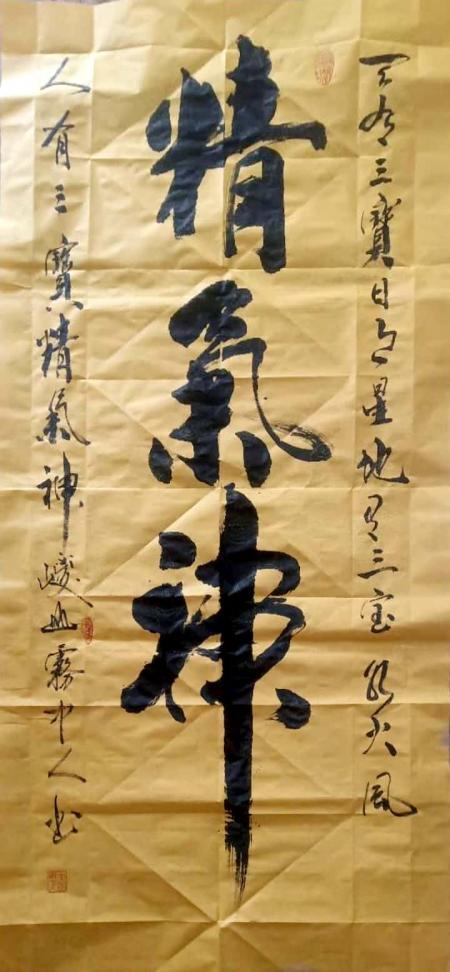 天有三寶日月星地有三宝水火風
精氣神
人有三寶精氣神峻山霧中人书